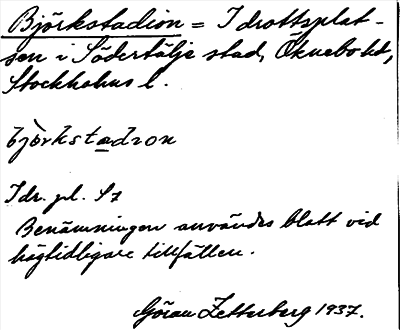 Björkstadion = Idrottsplat-
sen i Södertälje stad, Öknebo hd,
Stockholms l.
bjò̀rkstadion
Idr. pl. S7
Benämningen användes blott vid
högtidligare tillfällen.
Göran Zetterberg 1937.